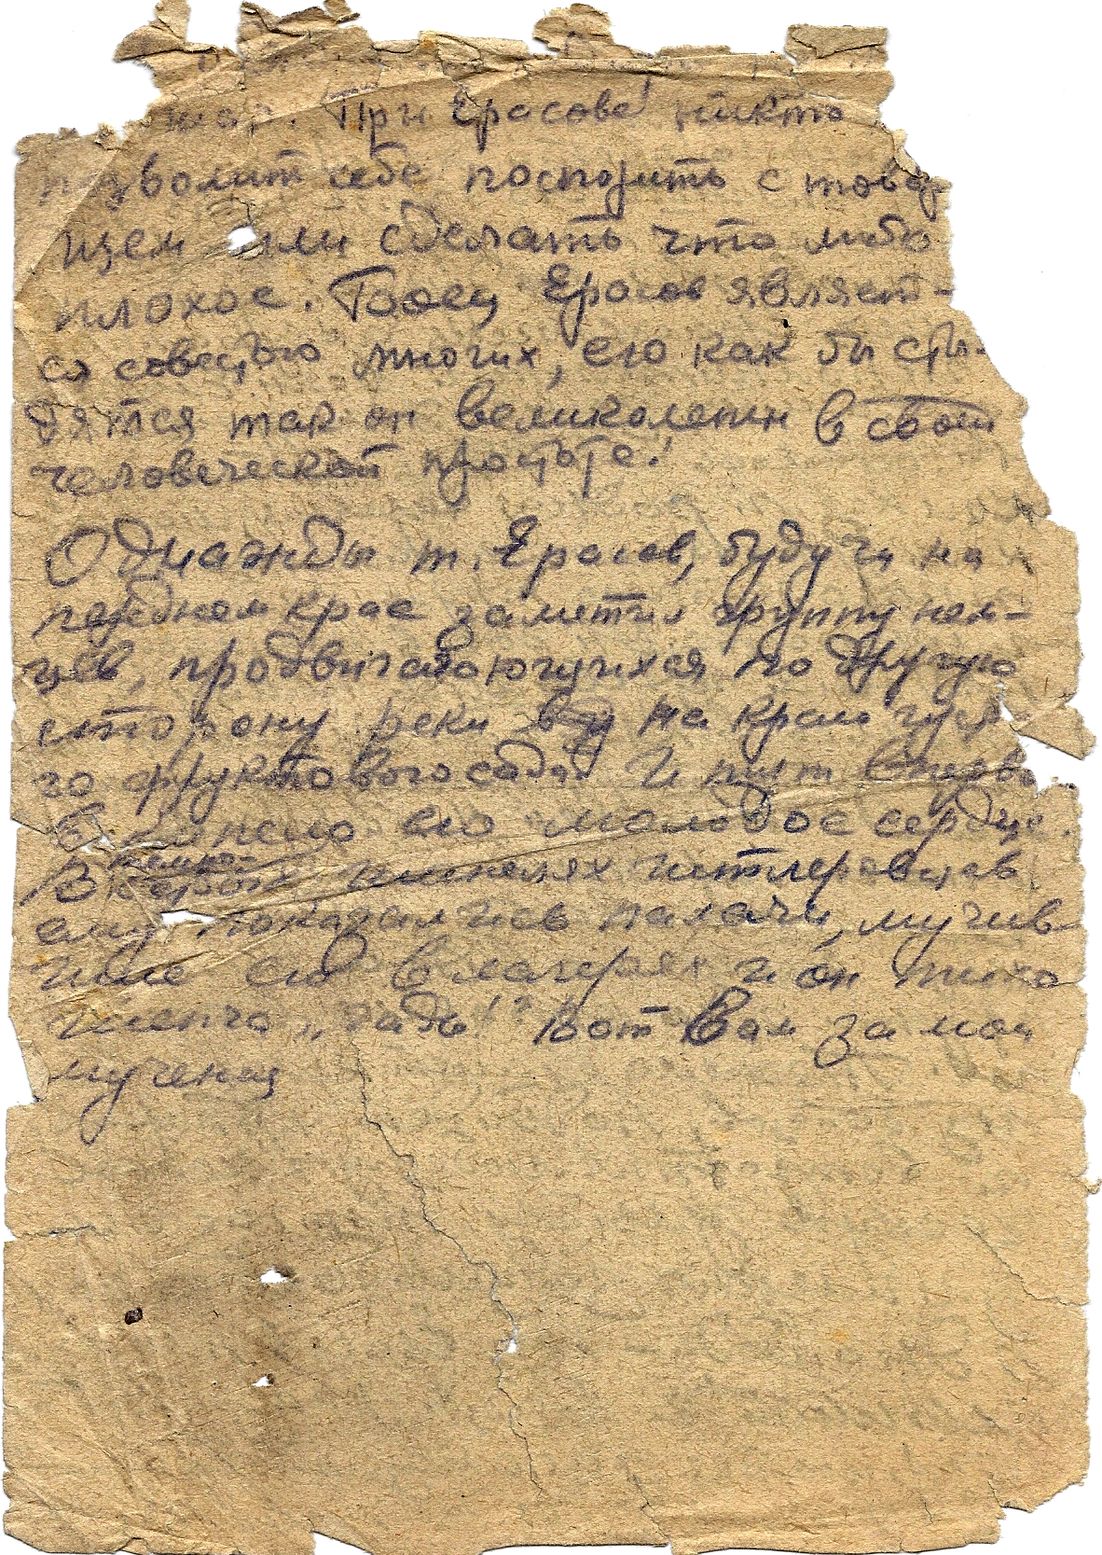 При Ерасове никто
позволит себе поспорить с товар
ищем или сделать что либо
плохое. Боец Ерасов являет-
ся совестью многих, его как бы сты-
дятся так он великолепен в своей
человеческой простоте!
Однажды т. Ерасов, будучи на
переднем крае заметил группу нем-
цев, продвигающихся по другую
сторону реки на краю густо
го фруктового сада. И
его молодое сердце.
В шинелях гитлеровцев
ему показались палачи, мучив
шие его в лагерях и он тихо
шепчо „гады!" Вот вам за мои
мучения